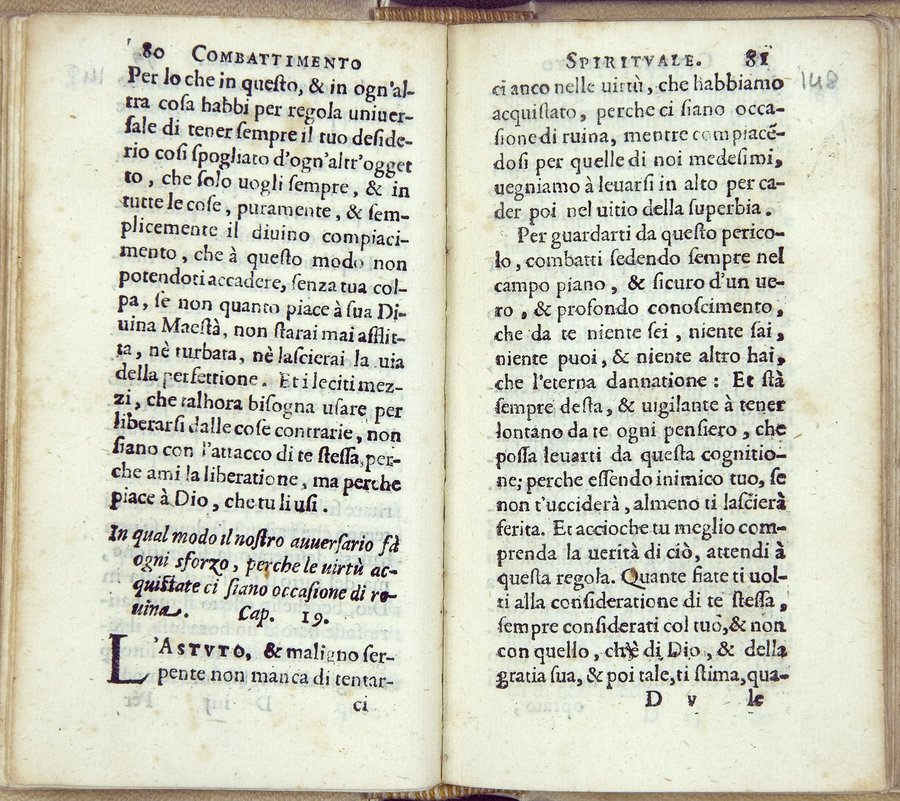 80 COMBATTIMENTO
Per lo che in questo, & in ogn'al-
tra cosa habbi per regola uniuer-
sale di tener sempre il tuo deside-
rio cosi spogliato d'ogn'altr'ogget
to, che solo uogli sempre, & in
tutte le cose, puramente, & sem-
plicemente il diuino compiaci-
mento, che à questo modo non
potendoti accadere, senza tua col-
pa, se non quanto piace à sua Di-
uina Maestà, non starai mai afflit-
ta, nè turbata, nè lascierai la uia
della perfettione. Et i leciti mez-
zi, che talhora bisogna usare per
liberarsi dalle cose contrarie, non
siano con l'attacco di te stessa, per-
che ami la liberatione, ma perche
piace à Dio, che tu li usi.
In qual modo il nostro auuersario fà
ogni sforzo, perche le uirtù ac-
quistate ci siano occasione di ro-
uina. Cap. 19.
L'ASTVTO, & maligno ser-
pente non manca di tentar-
ci
SPIRITVALE. 81
148
ci anco nelle uirtù, che habbiamo
acquistato, perche ci siano occa-
sione di ruina, mentre compiacẽ-
dosi per quelle di noi medesimi,
uegniamo à leuarsi in alto per ca-
der poi nel uitio della superbia.
Per guardarti da questo perico-
lo, combatti sedendo sempre nel
campo piano, & sicuro d'un ue-
ro, & profondo conoscimento,
che da te niente sei, niente sai,
niente puoi, & niente altro hai,
che l'eterna dannatione: Et stà
sempre desta, & uigilante à tener
lontano da te ogni pensiero, che
possa leuarti da questa cognitio-
ne; perche essendo inimico tuo, se
non t'ucciderà, almeno ti lascierà
ferita. Et accioche tu meglio com-
prenda la uerità di ciò, attendi à
questa regola. Quante fiate ti uol-
ti alla consideratione di te stessa,
sempre considerati col tuo, & non
con quello, chè di Dio, & della
gratia sua, & poi tale, ti stima, qua-
D v le